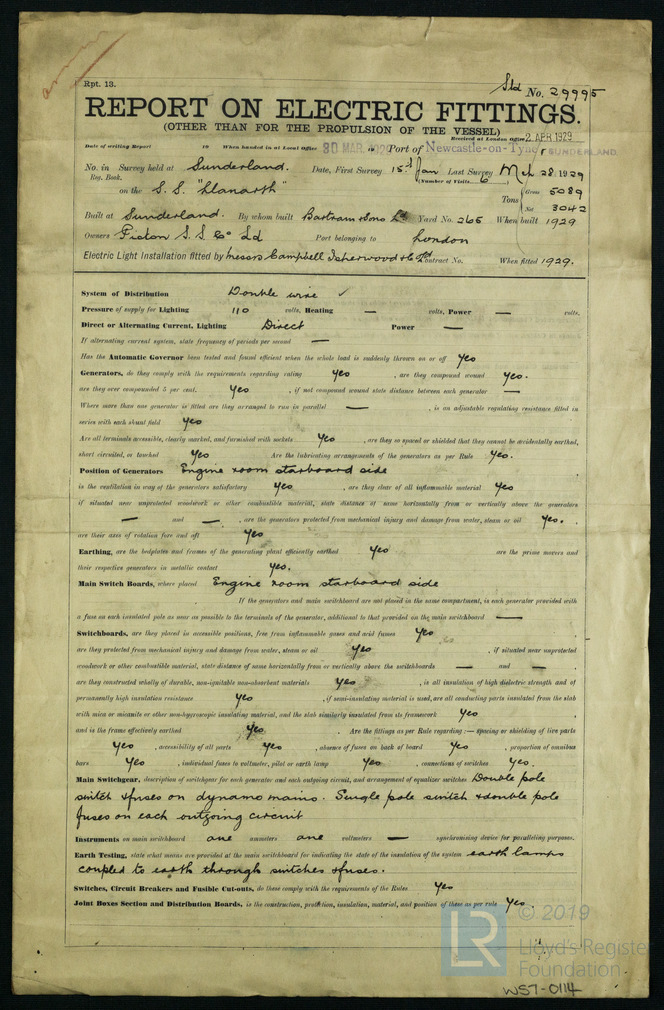 Rpt. 13.
Sld No. 29995
REPORT ON ELECTRIC FITTINGS.
(OTHER THAN FOR THE PROPULSION OF THE VESSEL)
Received at London Office 2 APR 1929
Date of writing Report 19 When handed in at Local Office 30 MAR 1929 19 Port of Newcastle-on-Tyne SUNDERLAND
No. in Survey held at Sunderland. Date, First Survey 15th Jan Last Survey Mch 28. 1929
Reg. Book. (Number of Visits 6
on the S.S. "Llanarth" Tons Gross 5089
Net 3042
Built at Sunderland. By whom built Bartram & Sons Ld Yard No. 265 When built 1929
Owners Piston S.S. Co Ld Port belonging to London
Electric Light Installation fitted by Messrs Campbell Isherwood & Co Ltd Contract No. When fitted 1929.
System of Distribution Double wire ✓
Pressure of supply for Lighting 110 volts, Heating — volts, Power — volts.
Direct or Alternating Current, Lighting Direct Power —
If alternating current system, state frequency of periods per second —
Has the Automatic Governor been tested and found efficient when the whole load is suddenly thrown on or off Yes
Generators, do they comply with the requirements regarding rating Yes , are they compound wound Yes.
are they over compounded 5 per cent. Yes , if not compound wound state distance between each generator —
Where more than one generator is fitted are they arranged to run in parallel — , is an adjustable regulating resistance fitted in
series with each shunt field Yes
Are all terminals accessible, clearly marked, and furnished with sockets Yes , are they so spaced or shielded that they cannot be accidentally earthed,
short circuited, or touched Yes Are the lubricating arrangements of the generators as per Rule Yes.
Position of Generators Engine room starboard side
is the ventilation in way of the generators satisfactory Yes , are they clear of all inflammable material Yes
if situated near unprotected woodwork or other combustible material, state distance of same horizontally from or vertically above the generators
— and — , are the generators protected from mechanical injury and damage from water, steam or oil Yes.
are their axes of rotation fore and aft Yes
Earthing, are the bedplates and frames of the generating plant efficiently earthed Yes are the prime movers and
their respective generators in metallic contact Yes.
Main Switch Boards, where placed Engine room starboard side
If the generators and main switchboard are not placed in the same compartment, is each generator provided with
a fuse on each insulated pole as near as possible to the terminals of the generator, additional to that provided on the main switchboard —
Switchboards, are they placed in accessible positions, free from inflammable gases and acid fumes Yes
are they protected from mechanical injury and damage from water, steam or oil Yes , if situated near unprotected
woodwork or other combustible material, state distance of same horizontally from or vertically above the switchboards — and —
are they constructed wholly of durable, non-ignitable non-absorbent materials Yes , is all insulation of high dielectric strength and of
permanently high insulation resistance Yes , if semi-insulating material is used, are all conducting parts insulated from the slab
with mica or micanite or other non-hygroscopic insulating material, and the slab similarly insulated from its framework Yes
and is the frame effectively earthed Yes. Are the fittings as per Rule regarding:— spacing or shielding of live parts
Yes , accessibility of all parts Yes , absence of fuses on back of board Yes , proportion of omnibus
bars Yes , individual fuses to voltmeter, pilot or earth lamp Yes , connections of switches Yes.
Main Switchgear, description of switchgear for each generator and each outgoing circuit, and arrangement of equaliser switches Double pole
switch & fuses on dynamo mains. Single pole switch & double pole
fuses on each outgoing circuit
Instruments on main switchboard one ammeters one voltmeters — synchronising device for paralleling purposes.
Earth Testing, state what means are provided at the main switchboard for indicating the state of the insulation of the system earth lamps
coupled to earth through switches & fuses.
Switches, Circuit Breakers and Fusible Cut-outs, do these comply with the requirements of the Rules Yes
Joint Boxes Section and Distribution Boards, is the construction, protection, insulation, material, and position of these as per rule Yes.
LR
© 2019
Lloyd's Register
Foundation
WS7-0114